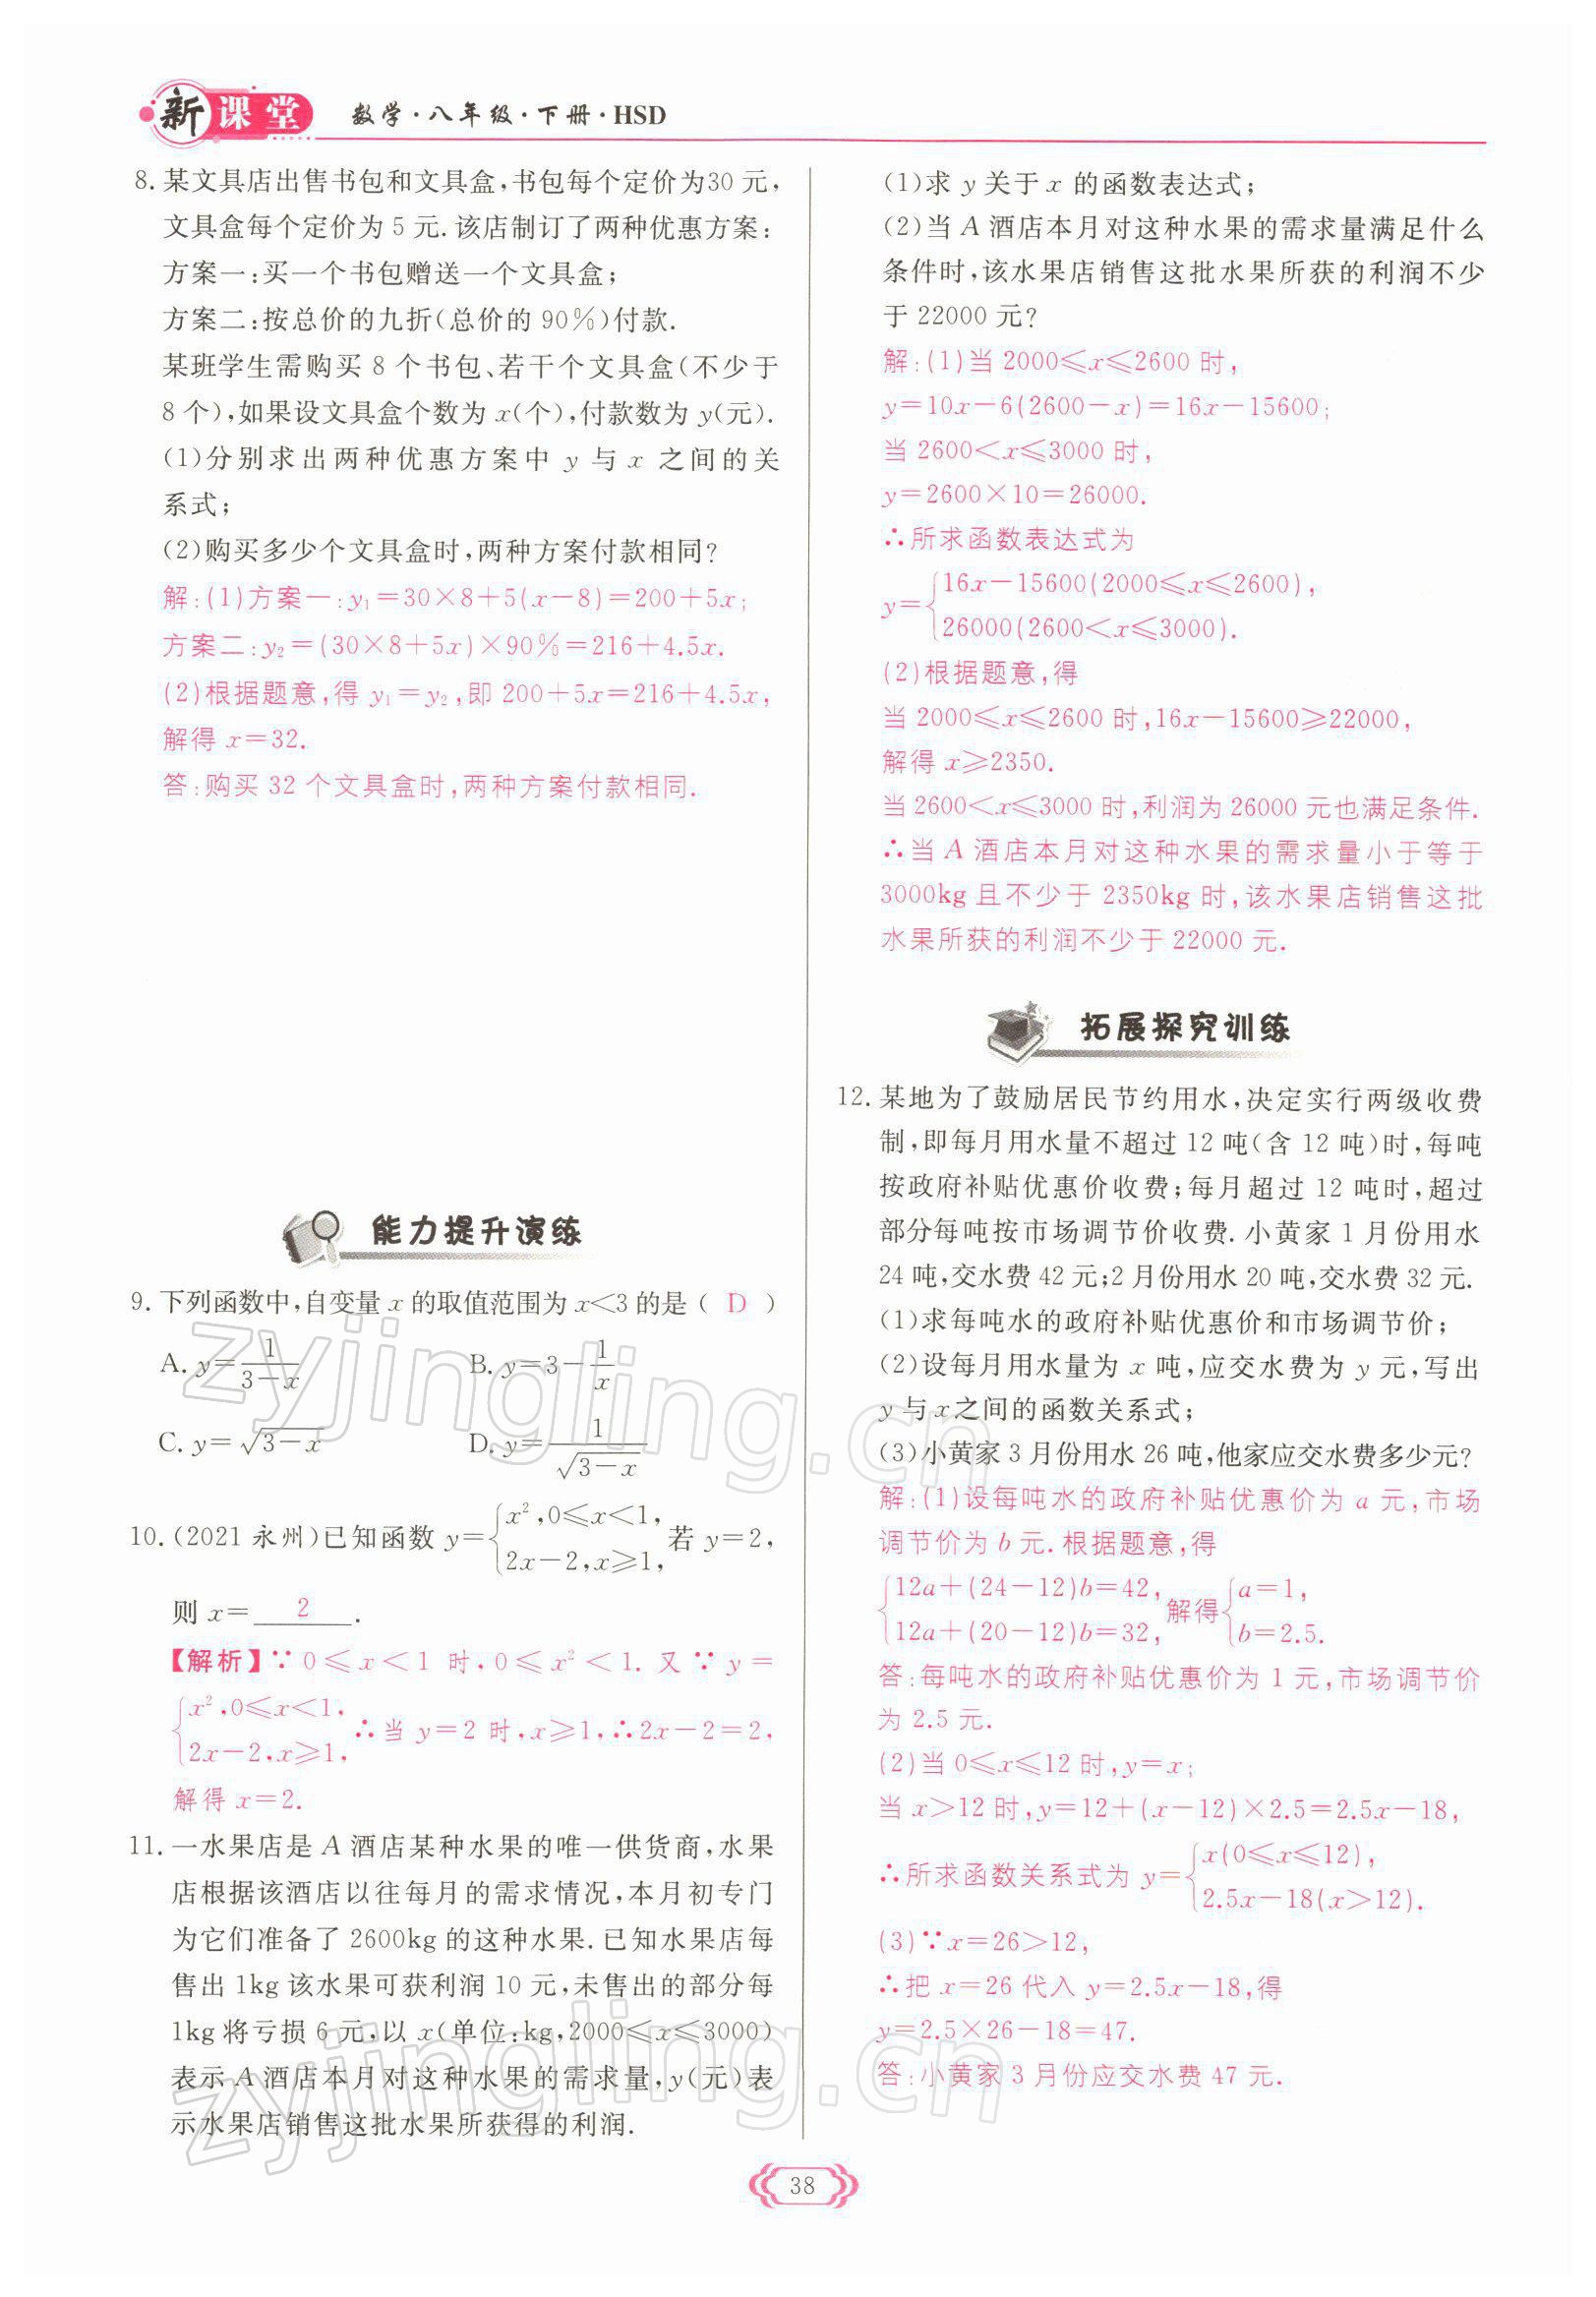 新课堂 数学·八年级·下册·HSD
8. 某文具店出售书包和文具盒,书包每个定价为30元,
文具盒每个定价为5元.该店制订了两种优惠方案:
方案一:买一个书包赠送一个文具盒;
方案二:按总价的九折(总价的90%)付款.
某班学生需购买8个书包、若干个文具盒(不少于
8个),如果设文具盒个数为x(个),付款数为y(元).
(1)分别求出两种优惠方案中y与x之间的关
系式;
(2)购买多少个文具盒时,两种方案付款相同?
解:(1)方案一:y₁=30×8+5(x-8)=200+5x;
方案二:y₂=(30×8+5x)×90%=216+4.5x.
(2)根据题意,得y₁=y₂,即200+5x=216+4.5x,
解得x=32.
答:购买32个文具盒时,两种方案付款相同.
能力提升演练
9. 下列函数中,自变量x的取值范围为x<3的是( D )
A. y=1/(3-x) B. y=3-1/x
C. y=√(3-x) D. y=1/√(3-x)
10. (2021永州)已知函数y={x²,0≤x<1, 2x-2,x≥1, 若y=2,
则x= 2 .
【解析】∵0≤x<1时,0≤x²<1.又∵y=
{x²,0≤x<1, 2x-2,x≥1, ∴当y=2时,x≥1,∴2x-2=2,
解得x=2.
11. 一水果店是A酒店某种水果的唯一供货商,水果
店根据该酒店以往每月的需求情况,本月初专门
为它们准备了2600kg的这种水果.已知水果店每
售出1kg该水果可获利润10元,未售出的部分每
1kg将亏损6元,以x(单位:kg,2000≤x≤3000)
表示A酒店本月对这种水果的需求量,y(元)表
示水果店销售这批水果所获得的利润.
(1)求y关于x的函数表达式;
(2)当A酒店本月对这种水果的需求量满足什么
条件时,该水果店销售这批水果所获的利润不少
于22000元?
解:(1)当2000≤x≤2600时,
y=10x-6(2600-x)=16x-15600;
当2600<x≤3000时,
y=2600×10=26000.
∴所求函数表达式为
y={16x-15600(2000≤x≤2600),
26000(2600<x≤3000).
(2)根据题意,得
当2000≤x≤2600时,16x-15600≥22000,
解得x≥2350.
当2600<x≤3000时,利润为26000元也满足条件.
∴当A酒店本月对这种水果的需求量小于等于
3000kg且不少于2350kg时,该水果店销售这批
水果所获的利润不少于22000元.
拓展探究训练
12. 某地为了鼓励居民节约用水,决定实行两级收费
制,即每月用水量不超过12吨(含12吨)时,每吨
按政府补贴优惠价收费;每月超过12吨时,超过
部分每吨按市场调节价收费.小黄家1月份用水
24吨,交水费42元;2月份用水20吨,交水费32元.
(1)求每吨水的政府补贴优惠价和市场调节价;
(2)设每月用水量为x吨,应交水费为y元,写出
y与x之间的函数关系式;
(3)小黄家3月份用水26吨,他家应交水费多少元?
解:(1)设每吨水的政府补贴优惠价为a元,市场
调节价为b元.根据题意,得
{12a+(24-12)b=42, 12a+(20-12)b=32, 解得{a=1, b=2.5.
答:每吨水的政府补贴优惠价为1元,市场调节价
为2.5元.
(2)当0≤x≤12时,y=x;
当x>12时,y=12+(x-12)×2.5=2.5x-18,
∴所求函数关系式为y={x(0≤x≤12), 2.5x-18(x>12).
(3)∵x=26>12,
∴把x=26代入y=2.5x-18,得
y=2.5×26-18=47.
答:小黄家3月份应交水费47元.
38
zyjingling.cn
zyjingling.cn